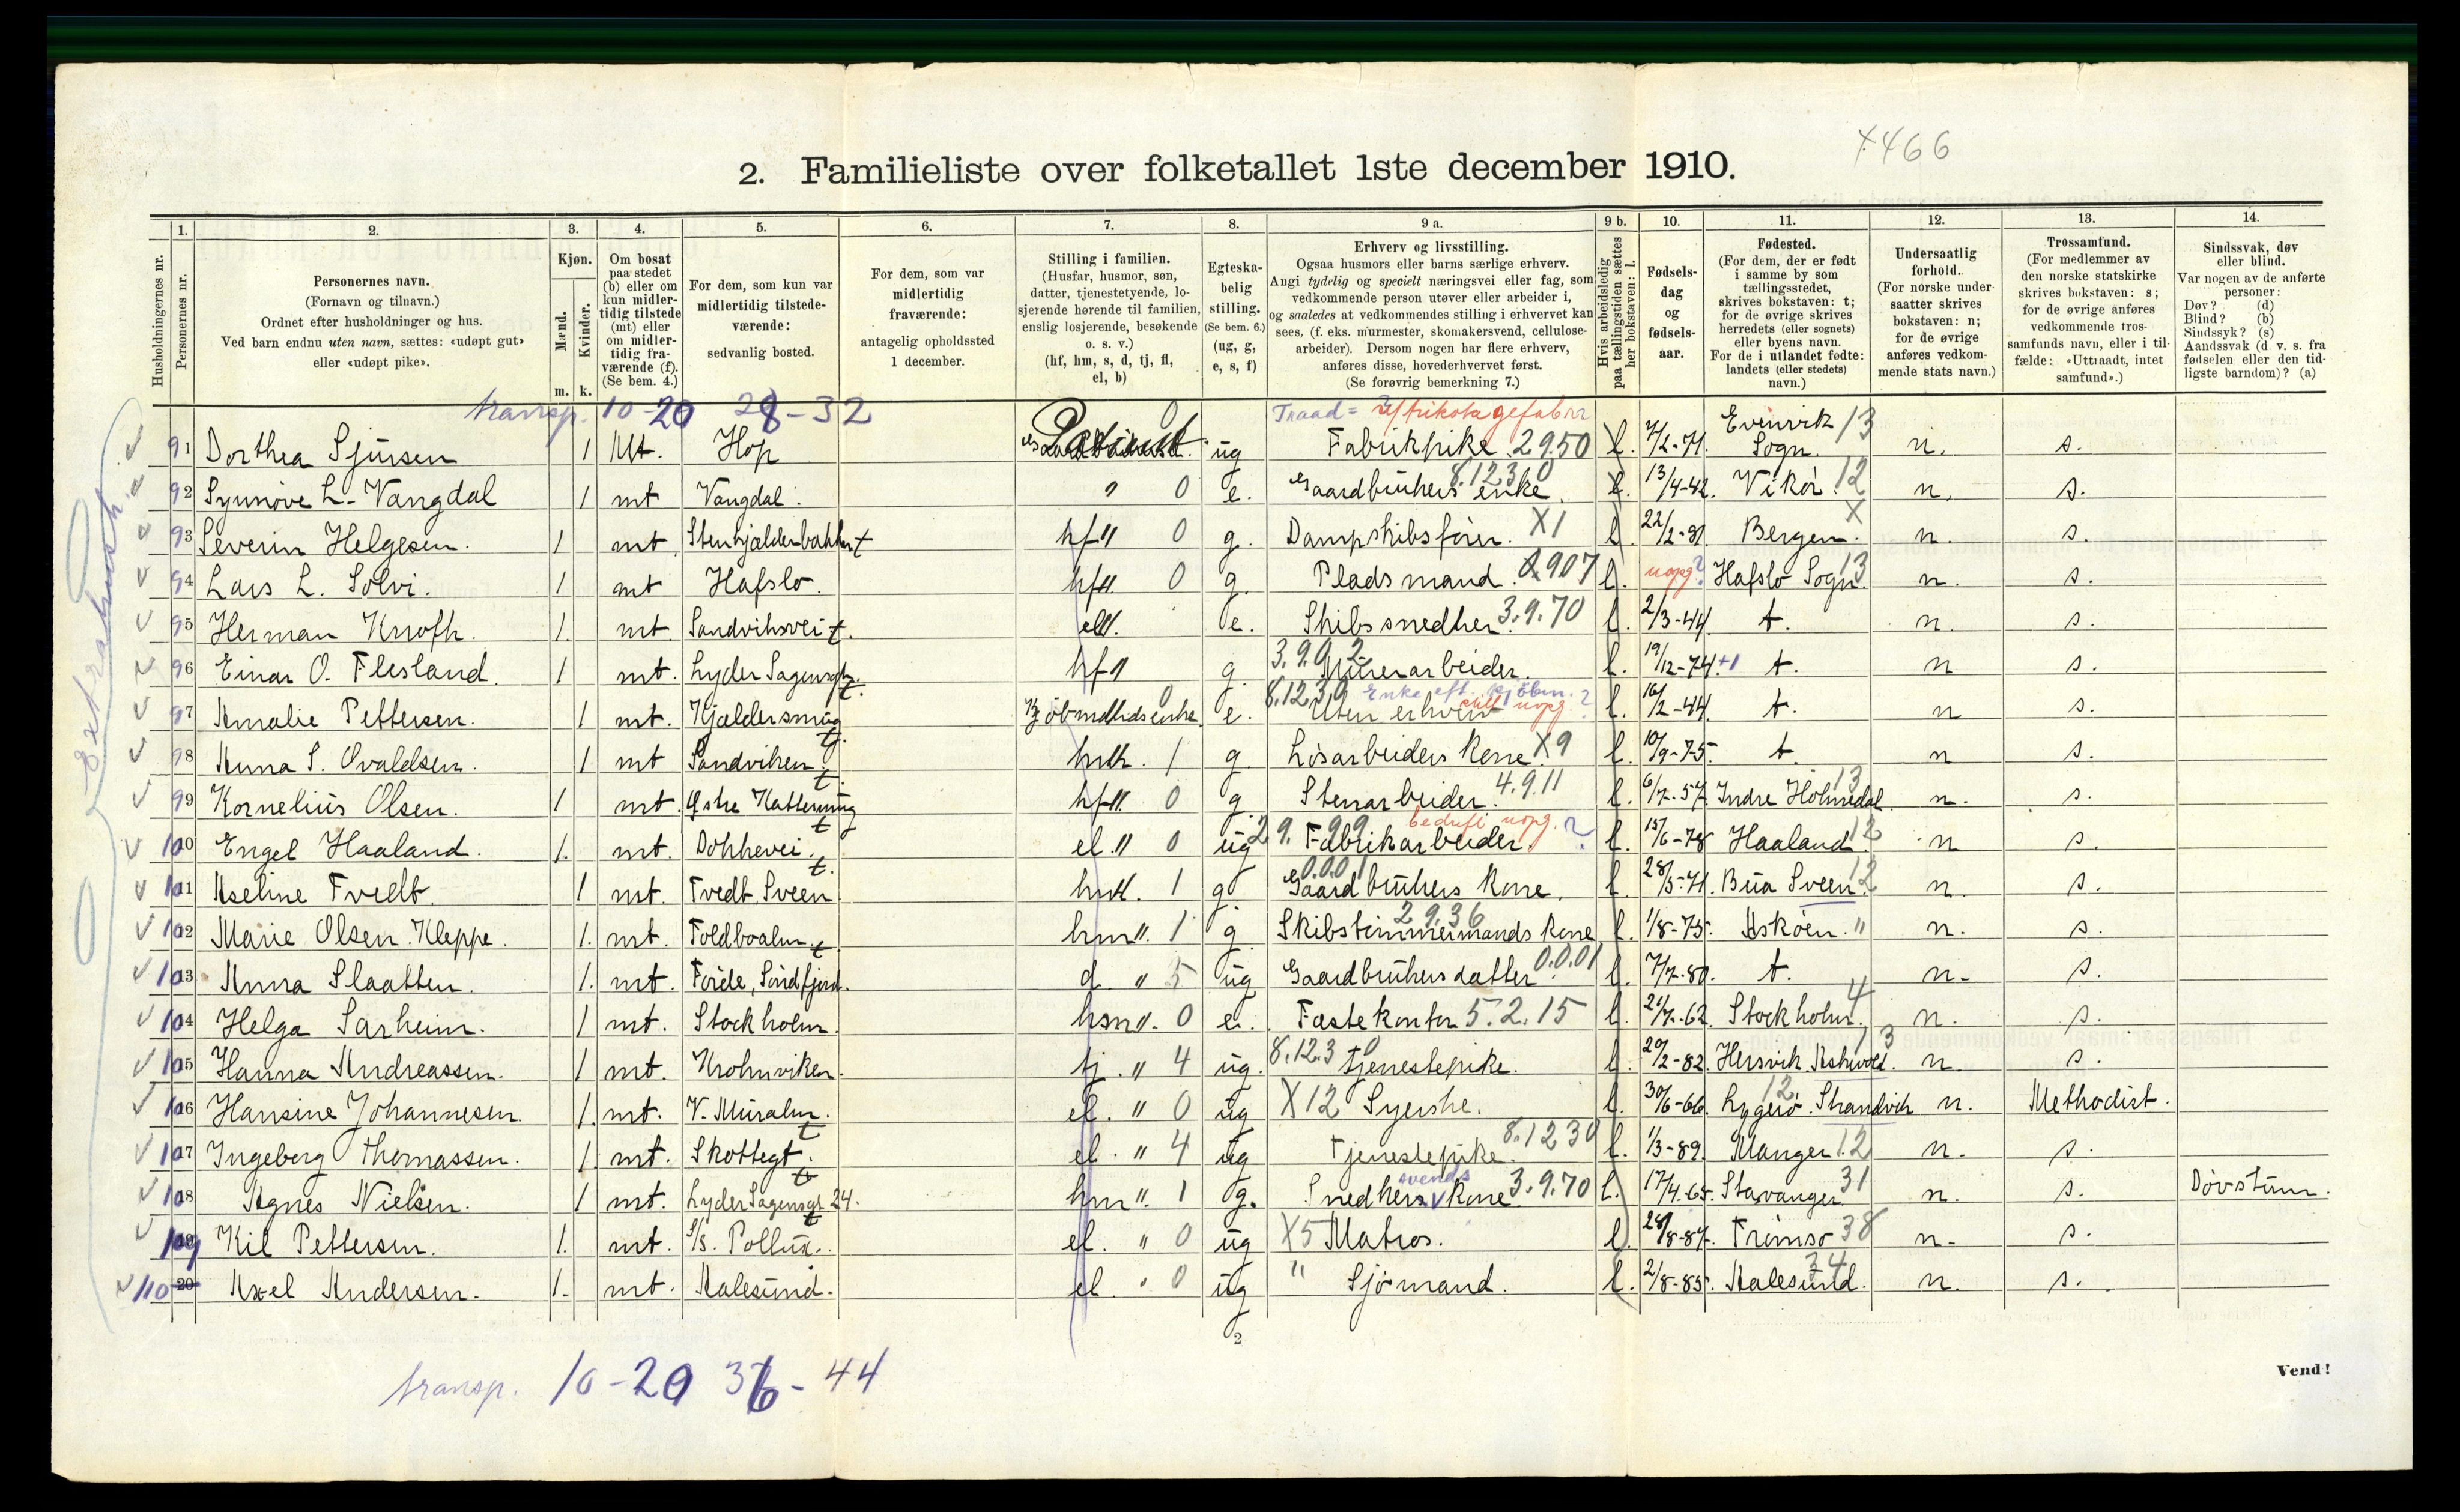 7466
2. Familieliste over folketallet 1ste december 1910.
1. 2. 3. 4. 5. 6. 7. 8. 9 a. 9 b. 10. 11. 12. 13. 14.
Husholdningernes nr.
Personernes nr.
Personernes navn.
(Fornavn og tilnavn.)
Ordnet efter husholdninger og hus.
Ved barn endnu uten navn, sættes: «udøpt gut»
eller «udøpt pike».
Kjøn.
Mænd.
Kvinder.
m. k.
Om bosat
paa stedet
(b) eller om
kun midler-
tidig tilstede
(mt) eller
om midler-
tidig fra-
værende (f).
(Se bem. 4.)
For dem, som kun var
midlertidig tilstede-
værende:
sedvanlig bosted.
For dem, som var
midlertidig
fraværende:
antagelig opholdssted
1 december.
Stilling i familien.
(Husfar, husmor, søn,
datter, tjenestetyende, lo-
sjerende hørende til familien,
enslig losjerende, besøkende
o. s. v.)
(hf, hm, s, d, tj, fl,
el, b)
Egteska-
belig
stilling.
(Se bem. 6.)
(ug, g,
e, s, f)
Erhverv og livsstilling.
Ogsaa husmors eller barns særlige erhverv.
Angi tydelig og specielt næringsvei eller fag, som
vedkommende person utøver eller arbeider i,
og saaledes at vedkommendes stilling i erhvervet kan
sees, (f. eks. murmester, skomakersvend, cellulose-
arbeider). Dersom nogen har flere erhverv,
anføres disse, hovederhvervet først.
(Se forøvrig bemerkning 7.)
Hvis arbeidsledig
paa tællingstiden sættes
her bokstaven: l.
Fødsels-
dag
og
fødsels-
aar.
Fødested.
(For dem, der er født
i samme by som
tællingsstedet,
skrives bokstaven: t;
for de øvrige skrives
herredets (eller sognets)
eller byens navn.
For de i utlandet fødte:
landets (eller stedets)
navn.)
Undersaatlig
forhold.
(For norske under-
saatter skrives
bokstaven: n;
for de øvrige
anføres vedkom-
mende stats navn.)
Trossamfund.
(For medlemmer av
den norske statskirke
skrives bokstaven: s;
for de øvrige anføres
vedkommende tros-
samfunds navn, eller i til-
fælde: «Uttraadt, intet
samfund».)
Sindssvak, døv
eller blind.
Var nogen av de anførte
personer:
Døv? (d)
Blind? (b)
Sindssyk? (s)
Aandssvak (d. v. s. fra
fødselen eller den tid-
ligste barndom)? (a)
transp. 10-20 28-32
91 Dorthea Sjursen 1 Mt. Hop ug Fabrikpike 2950 l. 7/2-71 Evinvik Sogn 13 n. s.
92 Synnøve L. Vangdal 1 mt Vangdal " 0 e. Gaardbrukers enke 8.12.30 l. 13/4-42. Vikør 12 n. s.
93 Severin Helgesen. 1 mt. Stenkjelderbakken t hf " 0 g. Dampskibsfører. X1 l. Bergen. X n. s.
94 Lars L. Solvi. 1 mt Hafslo. hf " 0 g. Pladsmand. 0.907 l. uopg? Hafslo Sogn 13 n. s.
95 Herman Krofh. 1. mt. Sandviksvei t. el ". e. Skibssnedker 3.9.70 l. 2/3-44. t. n. s.
96 Einar O. Flesland. 1 mt. Lyder Sagensgt. t. hf " g. 3.9.0 2 Murerarbeider. l. 19/12-74. +1 t. n s.
97 Amalie Pettersen. 1 mt. Kjeldersmug t. Kjøbmdhds enke 0 e. 8.12.30 Enke eft. kjøbm. ? Uten erhverv uopg. l. 16/2-44. t. n s.
98 Anna S. Ovaldsen. 1 mt Sandviken t. hm. 1 g. Løsarbeiders kone X9 l. 10/9-75. t. n s.
99 Kornelius Olsen. 1 mt. Østre Hattesmug t hf ". 0 g. Stenarbeider. 4.9.11 l. 6/7-57. Indre Holmedal 13 n. s.
100 Engel Haaland. 1. mt. Dokkevei. t. el " 0 ug 29.99 Fabrikarbeider. bedrift uopg. ? l. 15/6-78 Haaland 12 n s.
101 Aseline Tvedt. 1 mt. Tvedt Sveen hm. 1 g 0.0.01 Gaardbrukers kone. l. 28/3-71. Bua Sveen 12 n. s.
102 Marie Olsen Kleppe. 1. mt. Toldboalm. t hm ". 1 g. 2 9.36 Skibstømmermands kone l. 1/8-75. Askøen. " n. s.
103 Anna Slaatten. 1. mt. Førde, Søndfjord. d " 5 ug Gaardbrukers datter 0.0.01 l. 7/7-80. t. n- s.
104 Helga Sarheim. 1 mt. Stockholm. hm ". 0 e. Fæstekontor 5.2.15 l. 21/7-62. Stockholm 4 n. s.
105 Hanna Andreassen. 1 mt. Krohnviken. tj. " 4 ug. 8.12.30 Tjenestepike. l. 20/2-82. Hersvik Askvold. 13 n. s.
106 Hansine Johannesen. 1. mt. V. Muralm. t el. " 0 ug X12 Syerske. l. 30/6-66. Lygrø Strandvik 12 n. Methodist.
107 Ingeborg Thomassen. 1. mt. Skottegt. t el. " 4 ug Tjenestepike. 8.12 30 l. 1/3-89. Manger 12 n. s.
108 Agnes Nielsen. 1 mt. Lyder Sagensgt 24. t hm ". 1 g. Snedkersvends kone 3.9.70 l. 17/4-65. Stavanger 31 n. s. Døvstum.
109 Kil Pettersen. 1. mt. S/S. Pollux. el. " 0 ug X5 Matros. l. 28/8-87. Tromsø 38 n- s.
110 Axel Andersen. 1. mt. Aalesund. el. " 0 ug " Sjømand. l. 2/8-85. Aalesund. 34 n. s.
2
Vend!
transp. 10-20 36-44